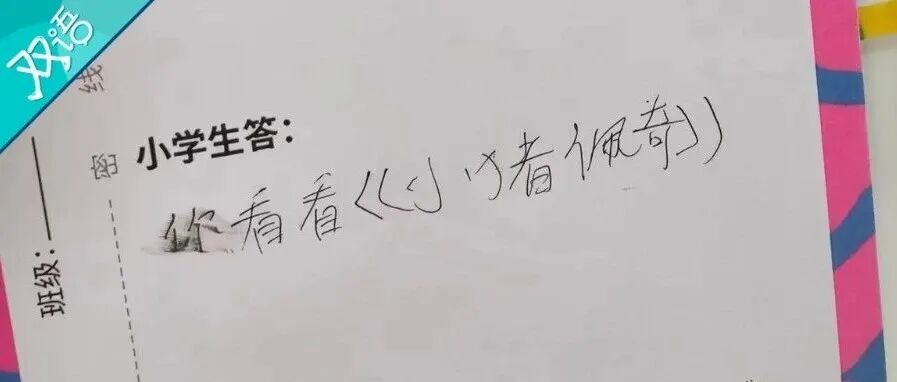 双语
线
密
班级:
小学生答:
你看看《小猪佩奇》